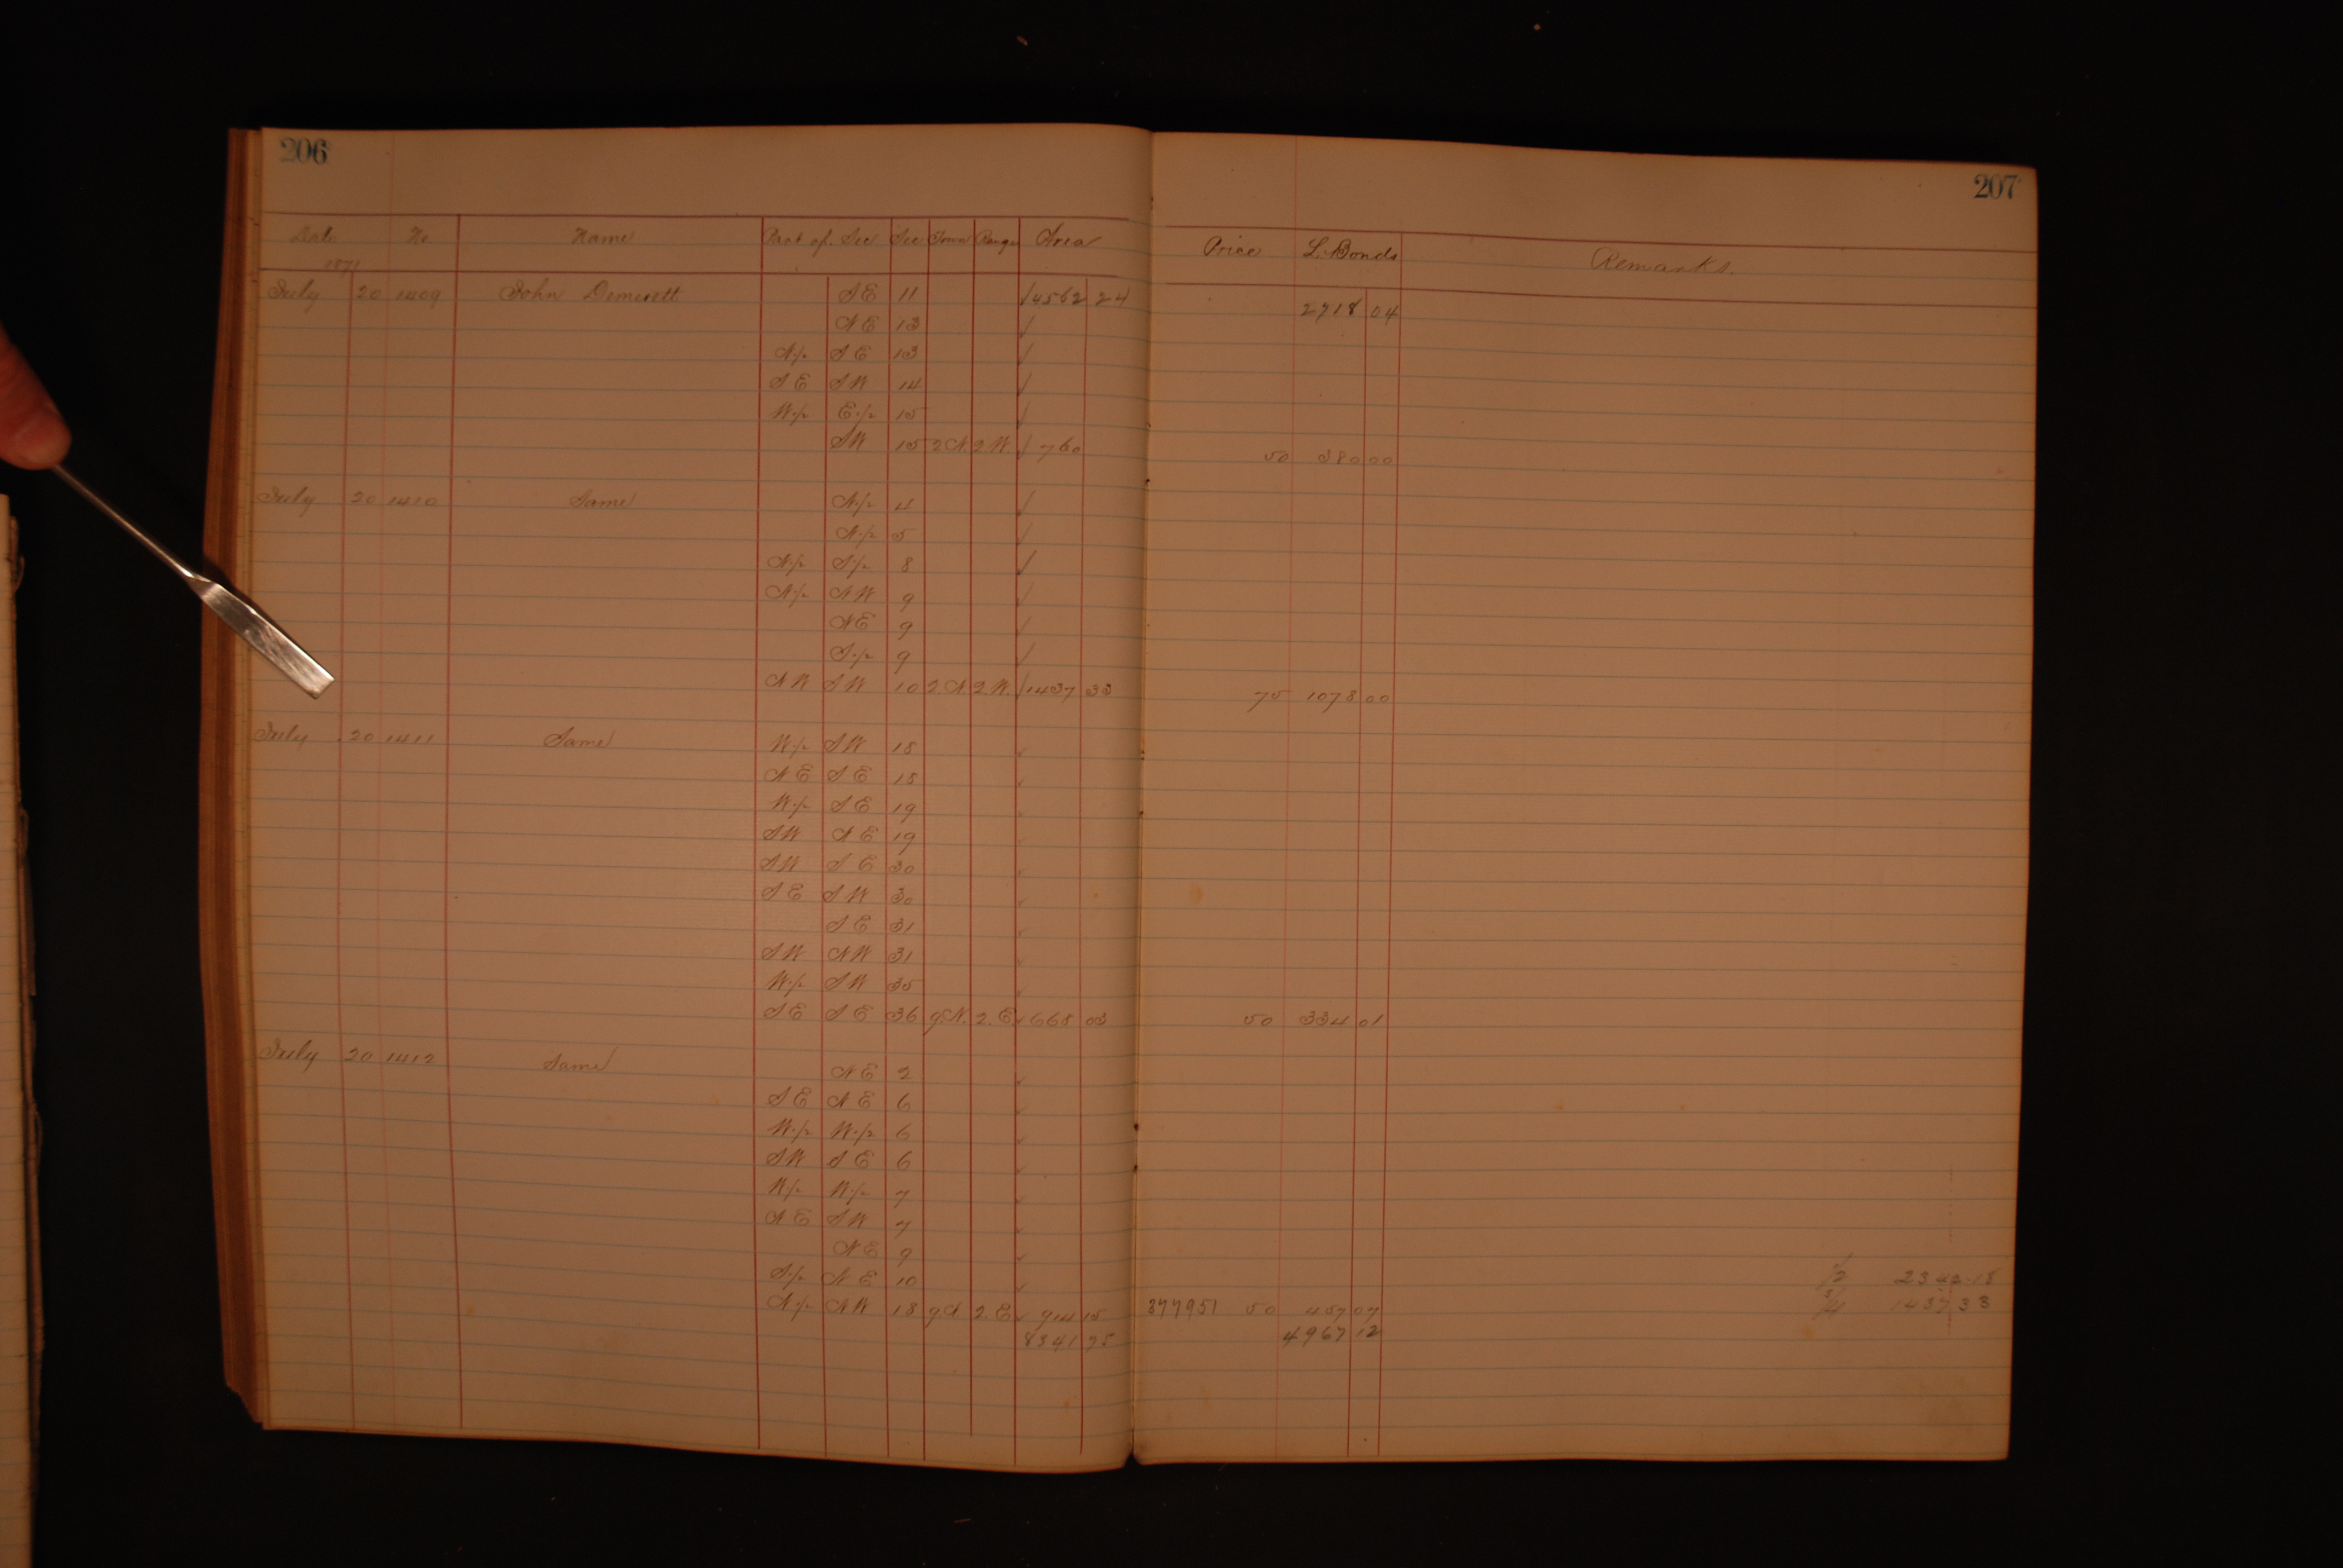 206
207
Date No. Name Part of Sec Sec Town Range Area Price L. Bonds Remarks.
1871
July 20 1409 John Demerett SE 11 4562 24 2718 04
NE 13
N½ SE 13
SE SW 14
W½ E½ 15
SW 15 2N. 2W. 760 50 380 00
July 20 1410 Same N½ 4
N½ 5
N½ S½ 8
N½ NW 9
NE 9
S½ 9
NW SW 10 2.N 2W. 1437 33 75 1078 00
July 20 1411 Same W½ SW 18
NE SE 18
W½ SE 19
SW NE 19
SW SE 30
SE SW 30
SE 31
SW NW 31
W½ SW 35
SE SE 36 9N. 2.E 668 03 50 334 01
July 20 1412 Same NE 2
SE NE 6
W½ W½ 6
SW SE 6
W½ W½ 7
NE SW 7
NE 9
S½ NE 10 ½ 2342.18
N½ NW 18 9N 2.E 914 15 377951 50 457 07 ¾ 1437 33
8341 75 4967 12